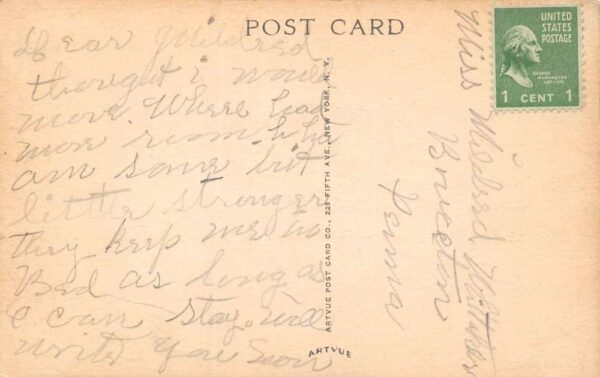 POST CARD
Dear Mildred
thought i would
move. Where had
more room
am some bit
little stronger
they keep me in
Bed as long as
I can stay. will
write you Soon
ARTVUE POST CARD CO., 225 FIFTH AVE., NEW YORK, N. Y.
ARTVUE
UNITED
STATES
POSTAGE
GEORGE
WASHINGTON
1 CENT 1
Miss Mildred
Penna